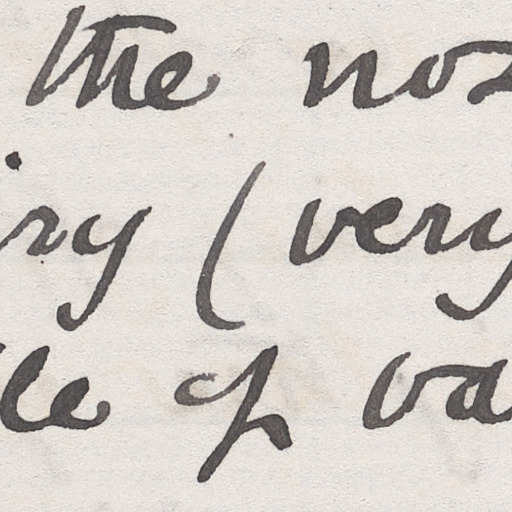 the no
iry (very
le of va